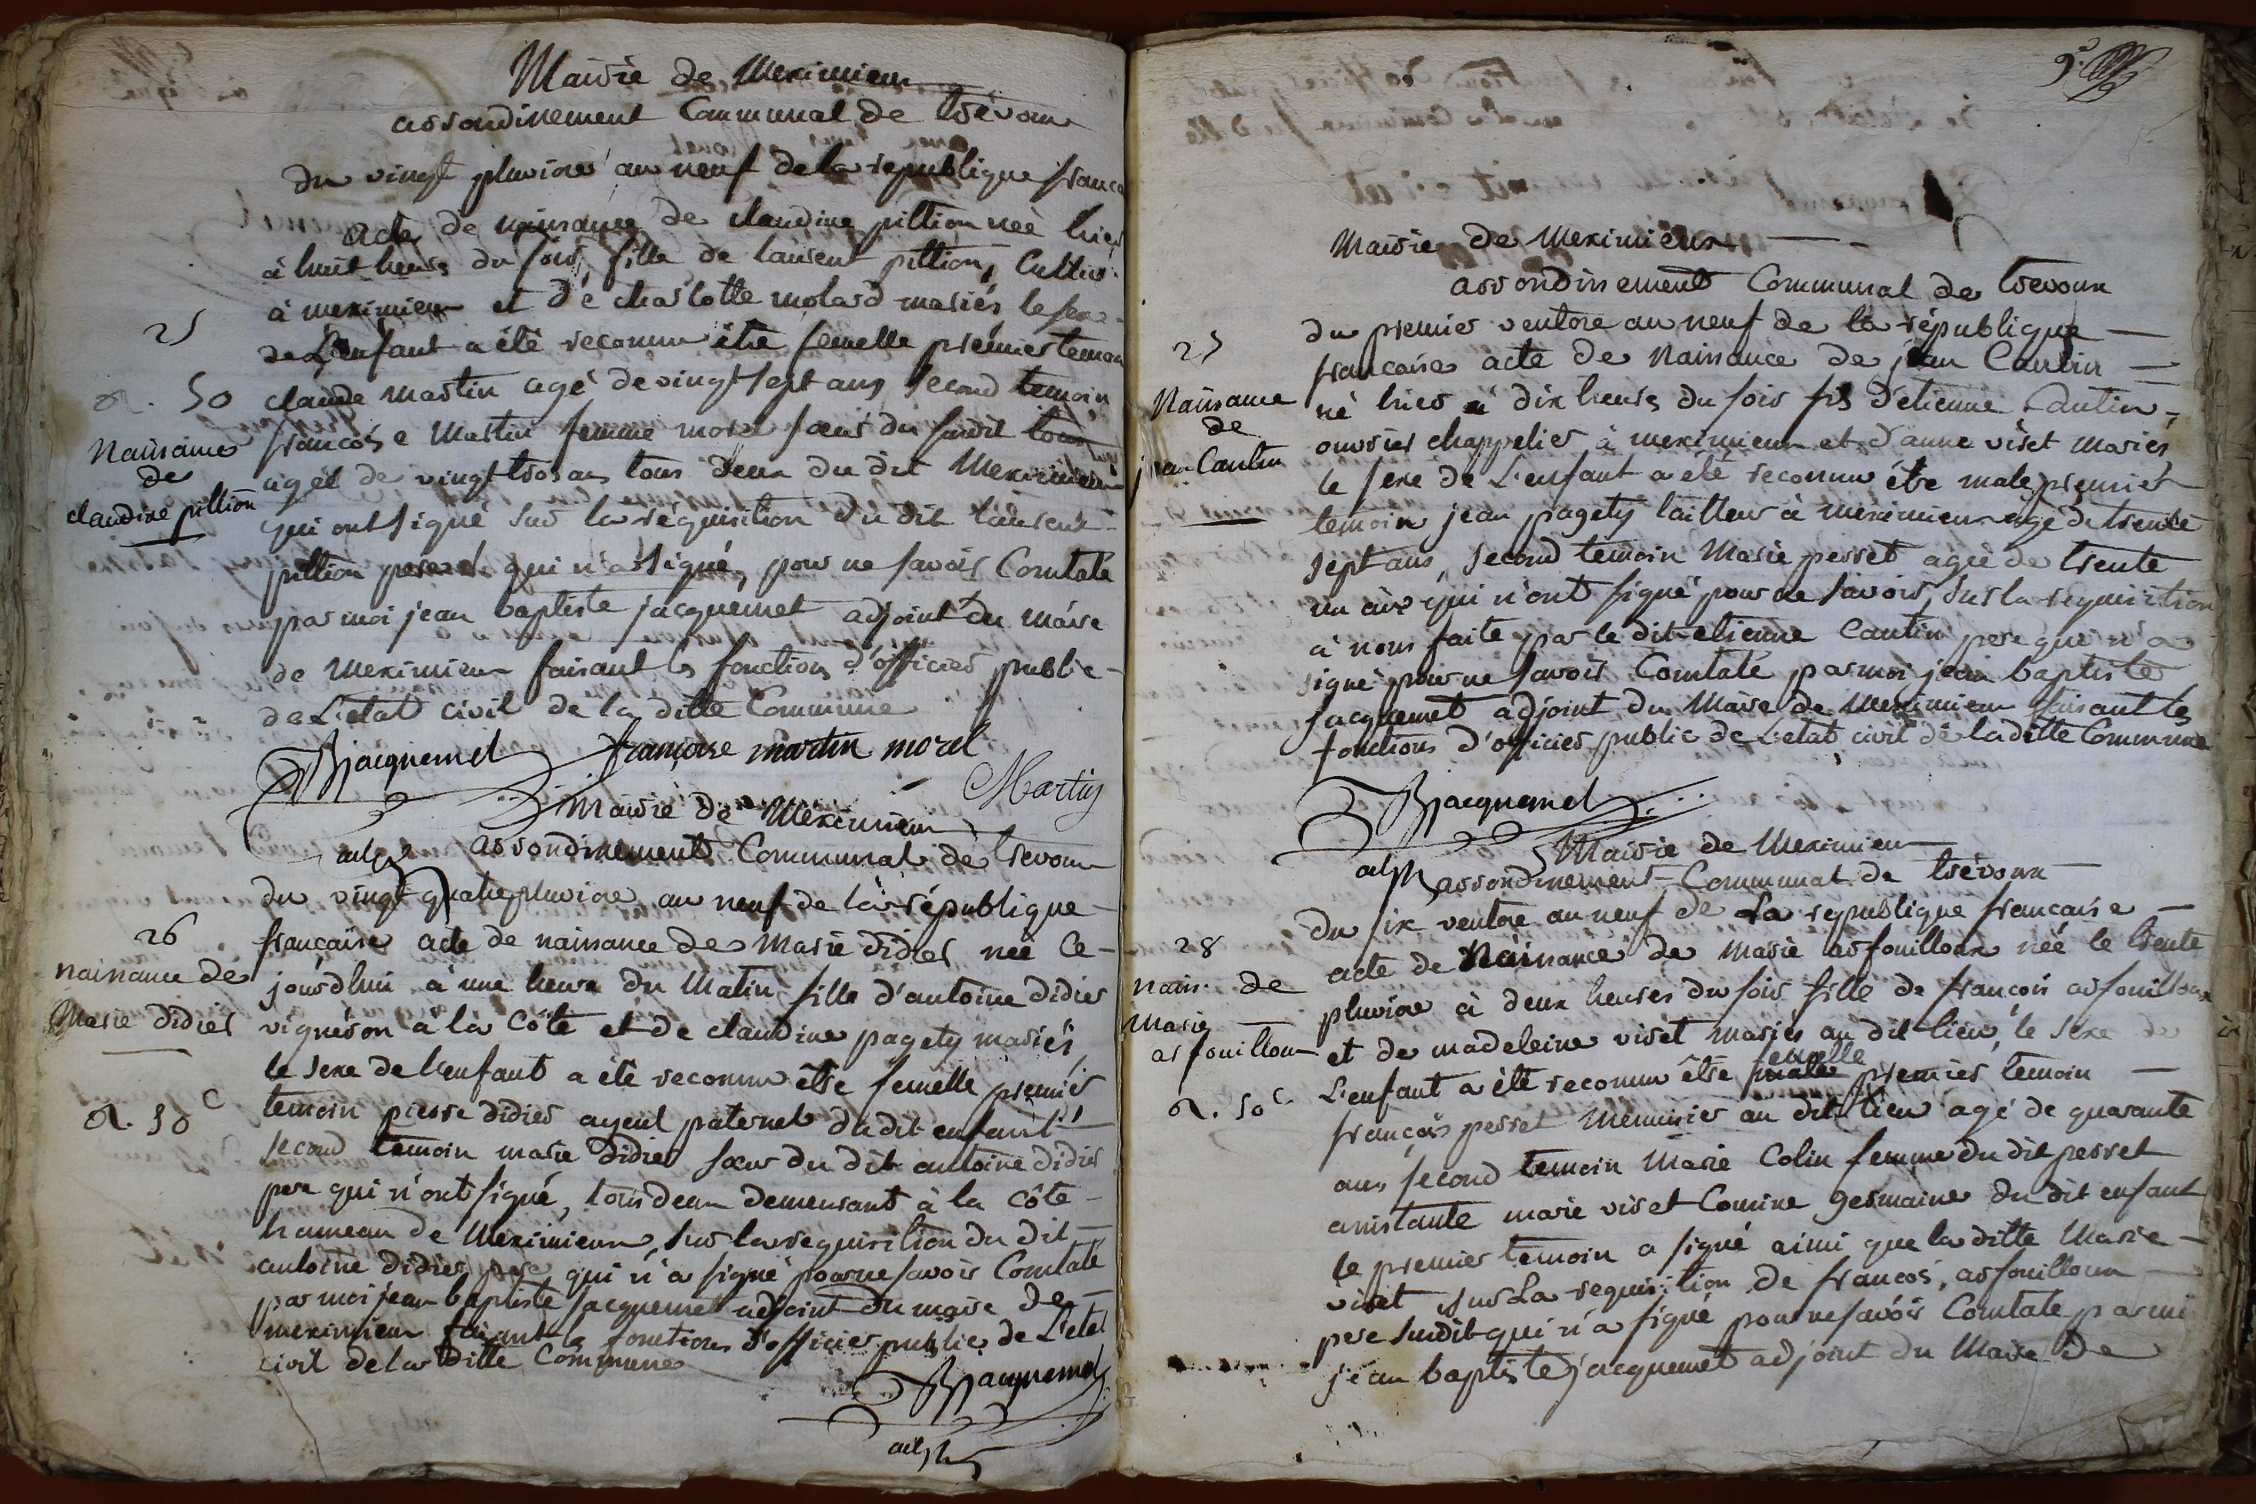 Mairie de Meximieux
arrondinement Communal de trévoux
du vingt pluviose an neuf de la republique franca
acte de naissance de claudine pillion néé hier
à huit heures du soir, fille de laurent pillion, Cultiv.
à meximieux et de charlotte molard mariés le sexe
25
de L'enfant a été reconnu être femelle premier temoin
50
claude martin agé de vingt sept ans second temoin
francoise Martin femme morel sœur du susdit
Naissance
de
claudine pillion
agéé de vingt trois ans tous deux du dit Meximieux
qui ont signé sur la réquisition du dit laurent
pillion pere qui n'a signé, pour ne savoir Constaté
par moi jean baptiste jacquemet adjoint du maire
de meximieux faisant les fonctions d'officier public
de L'etat civil de la ditte Commune
Bjacquemet francoise martin morel
Martin
adjt
Mairie de Méximieux
arrondinement Communal de trevoux
du vingt quatre pluviose an neuf de la république
26
naissance de
Marie didier
française acte de naissance de Marie didier néé Ce
jourd'hui à une heure du Matin fille d'antoine didier
vigneron à la Côte et de claudine pagety mariés
le sexe de l'enfant a été reconnu être femelle premier
50 c
temoin pierre didier ayeul paternel du dit enfant
second temoin marie didier sœur du dit antoine didier
pere qui n'ont signé, tous deux demeurant à la Côte
hameau de Meximieux sur la requisition du dit
antoine didier pere qui n'a signé pour ne savoir Constaté
par moi jean baptiste jacquemet adjoint du maire de
meximieux faisant les fonctions d'officier public de L'etat
civil de la ditte Commune
Bjacquemet
adjt
Mairie de Meximieux
arrondinement Communal de trevoux
du premier ventose an neuf de la république
27
Naissance
de
jean Cantin
francaise acte de Naissance de jean Cantin
né hier à dix heures du soir fils d'etienne Cantin
ouvrier chappelier à meximieux et d'anne viret mariés
le sexe de L'enfant a été reconnu être male premier
temoin jean pagety tailleur à meximieux agé de trente
sept ans, second temoin Marie perret agéé de trente
un ans qui n'ont signé pour ne savoir, sur la requisition
à nous faite par le dit etienne Cantin pere qui n'a
signé pour ne savoir Constaté par moi jean baptiste
jacquemet adjoint du Maire de Meximieux faisant les
fonctions d'officier public de L'etat civil de la ditte Commune
Bjacquemet
adjt
Mairie de Meximieux
arrondinement Communal de trévoux
du six ventose an neuf de la republique francaise
28
nais. de
Marie
arfouilloux
acte de Naissance de Marie arfouilloux néé le trente
pluviose à deux heures du soir fille de francois arfouilloux
et de madeleine viret mariés au dit lieu, le sexe de
femelle
L'enfant a été reconnu être male premier temoin
50 c
françois perret Menuisier au dit lieu agé de quarante
ans second temoin Marie Colin femme du dit perret
assistante marie viret Cousine germaine du dit enfant
le premier temoin a signé ainsi que la ditte Marie
viret sur La requisition de francois arfouilloux
pere susdit qui n'a signé pour ne savoir Constaté par moi
jean baptiste jacquemet adjoint du Maire de